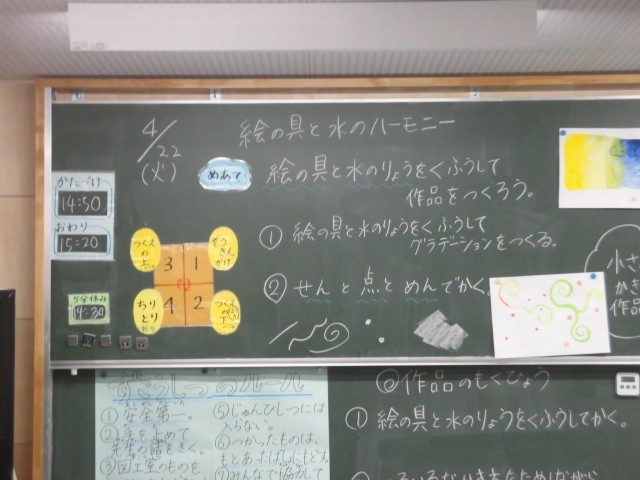 4/22
(火)
絵の具と水のハーモニー
めあて
絵の具と水のりょうをくふうして
作品をつくろう。
① 絵の具と水のりょうをくふうして
グラデーションをつくる。
② せんと点とめんでかく。
かたづけ
14:50
おわり
15:20
5分休み
14:30
3 1
4 2
ちり
とり
小さ
かき
作品
① 安全第一。
③ 図工室のものを
⑤ じゅんびしつには
入らない。
⑥ つかったものは、
もとあったばしょにもどす。
⑦ みんなで協力して
◎ 作品のもくひょう
① 絵の具と水のりょうをくふうしてかく。